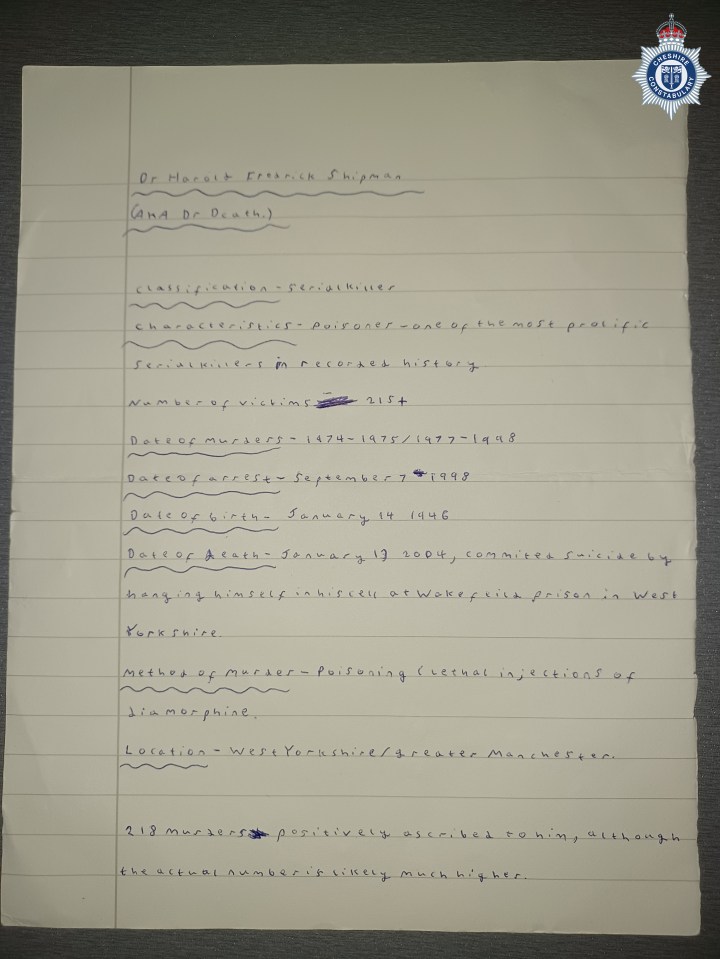 CHESHIRE CONSTABULARY
Dr Harold Fredrick Shipman
(AKA Dr Death.)
Classification - Serial killer
Characteristics - Poisoner - one of the most prolific
Serial killers in recorded history
Number of victims 215+
Date of murders - 1974-1975/1977-1998
Date of arrest - September 7 1998
Date of birth - January 14 1946
Date of death - January 13 2004, commited suicide by
hanging himself in his cell at Wakefeild prison in West
Yorkshire.
Method of murder - Poisoning (lethal injections of
diamorphine.
Location - West Yorkshire/greater Manchester.
218 murders positively ascribed to him, although
the actual number is likely much higher.